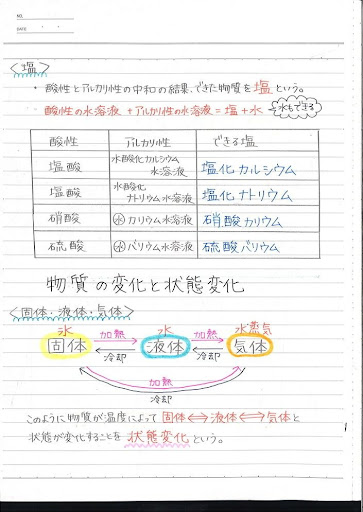 NO.
DATE
<塩>
・酸性とアルカリ性の中和の結果、できた物質を塩という。
酸性の水溶液+アルカリ性の水溶液=塩+水 水もできる
酸性 アルカリ性 できる塩
塩酸 水酸化カルシウム水溶液 塩化カルシウム
塩酸 水酸化ナトリウム水溶液 塩化ナトリウム
硝酸 ㊌カリウム水溶液 硝酸カリウム
硫酸 ㊌バリウム水溶液 硫酸バリウム
物質の変化と状態変化
<固体・液体・気体>
氷 加熱 水 加熱 水蒸気
固体 液体 気体
冷却 冷却
加熱
冷却
このように物質が温度によって固体⇔液体⇔気体と
状態が変化することを状態変化という。